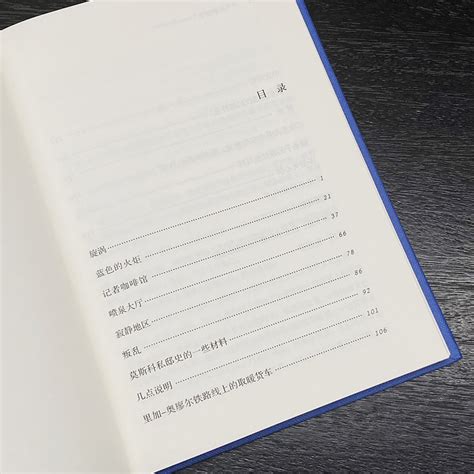 目 录
旋涡 ........ 1
蓝色的火炬 ........ 21
记者咖啡馆 ........ 37
喷泉大厅 ........ 66
寂静地区 ........ 78
叛乱 ........ 86
莫斯科私邸史的一些材料 ........ 92
几点说明 ........ 101
里加-奥廖尔铁路线上的取暖货车 ........ 106